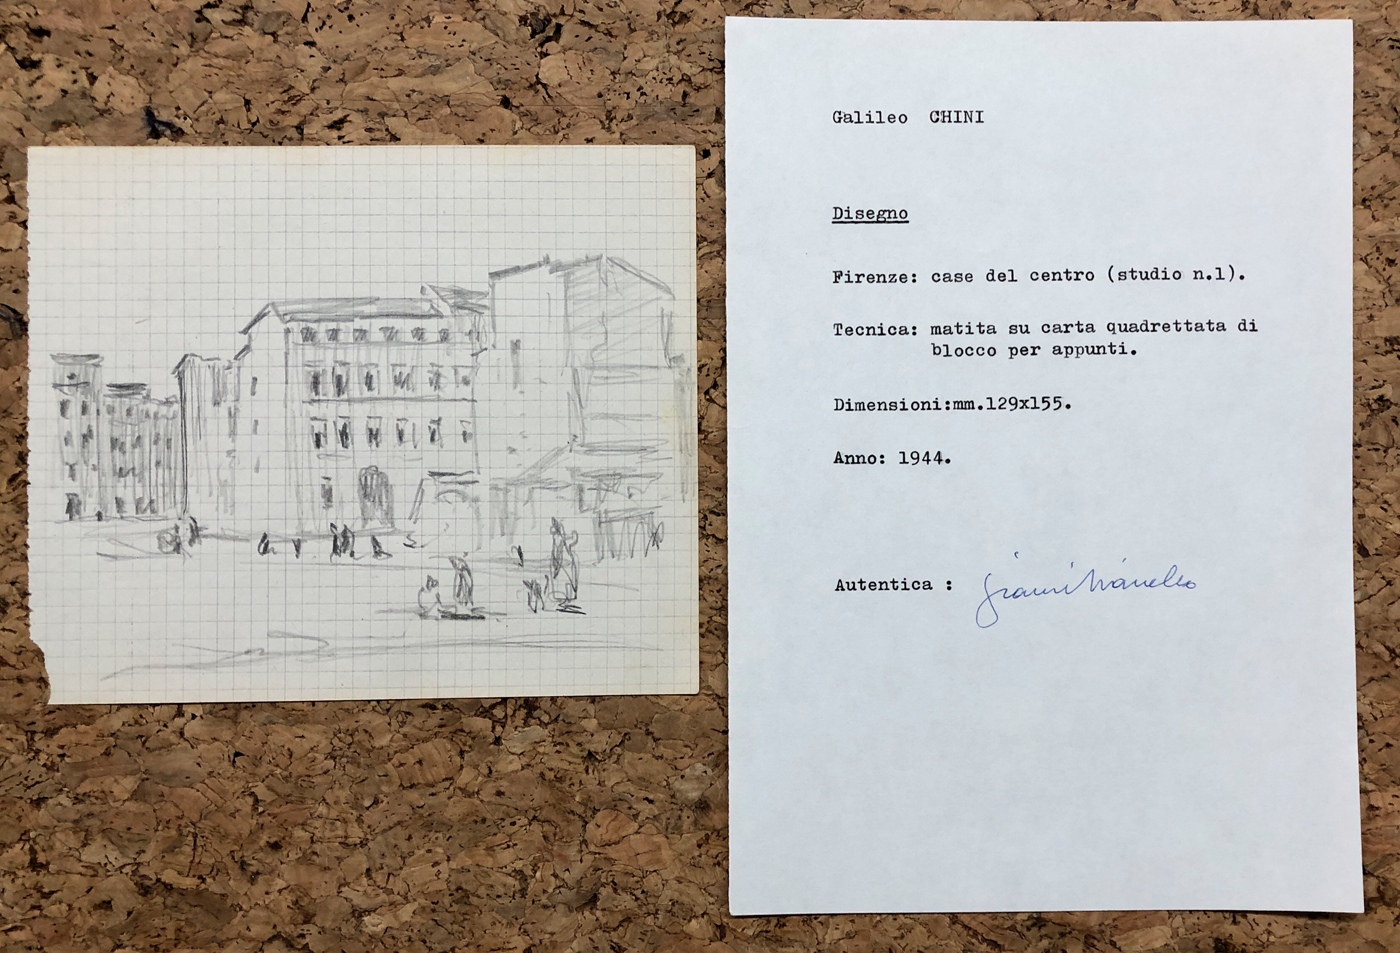 Galileo CHINI
Disegno
Firenze: case del centro (studio n.1).
Tecnica: matita su carta quadrettata di
blocco per appunti.
Dimensioni:mm.129x155.
Anno: 1944.
Autentica :